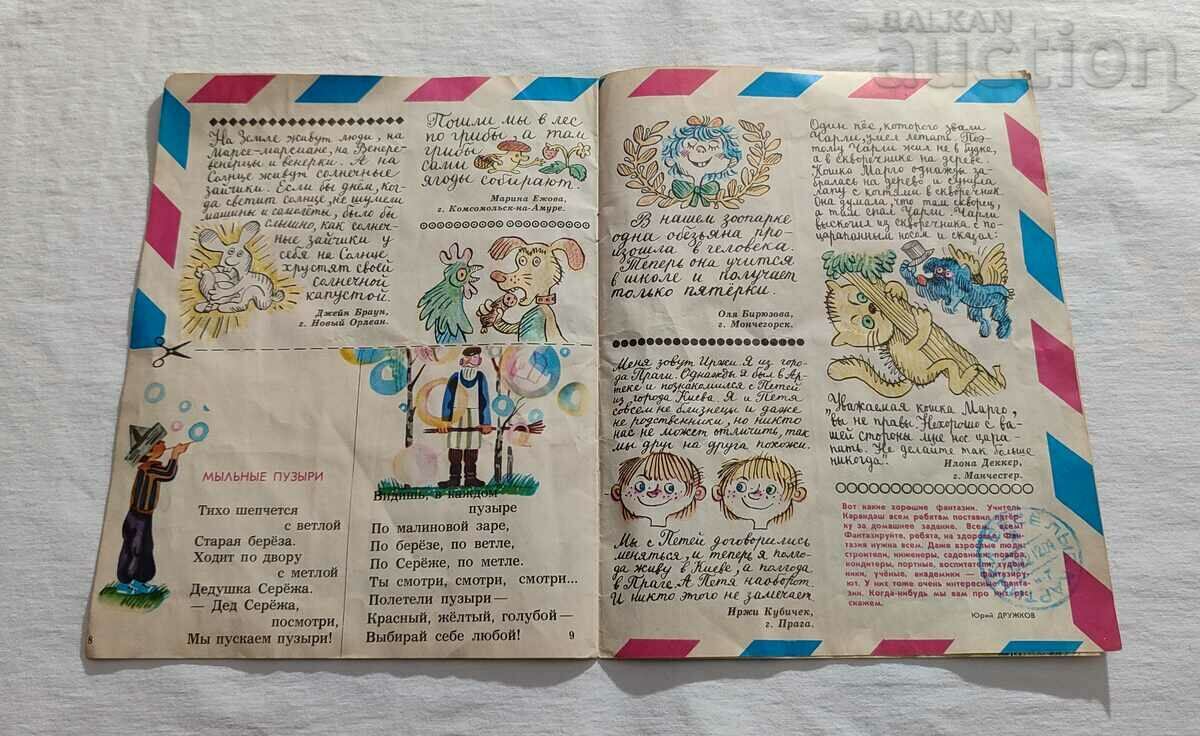 BALKAN
auction
На Земле живут люди, на
Марсе-марсиане, на Венере-
венерцы и венерки. А на
Солнце живут солнечные
зайчики. Если бы днём, ког-
да светит солнце, не шумели
машины и самолёты, было бы
слышно, как солнеч-
ные зайчики у
себя на Солнце
хрустят своей
солнечной
капустой.
Джейн Браун,
г. Новый Орлеан.
Пошли мы в лес
по грибы, а там
грибы
сами
ягоды собирают.
Марина Ежова,
г. Комсомольск-на-Амуре.
МЫЛЬНЫЕ ПУЗЫРИ
Тихо шепчется
с ветлой
Старая берёза.
Ходит по двору
с метлой
Дедушка Серёжа.
— Дед Серёжа,
посмотри,
Мы пускаем пузыри!
8
Видишь, в каждом
пузыре
По малиновой заре,
По берёзе, по ветле,
По Серёже, по метле.
Ты смотри, смотри, смотри...
Полетели пузыри—
Красный, жёлтый, голубой—
Выбирай себе любой!
9
В нашем зоопарке
одна обезьяна про-
изошла в человека.
Теперь она учится
в школе и получает
только пятёрки.
Оля Бирюзова,
г. Мончегорск.
Меня зовут Иржи. Я из горо-
да Праги. Однажды я был в Ар-
теке и познакомился с Петей
из города Киева. Я и Петя
совсем не близнецы и даже
не родственники, но никто
нас не может отличить, так
мы друг на друга похожи.
Мы с Петей договорились
меняться, и теперь я полго-
да живу в Киеве, а полгода
в Праге. А Петя наоборот.
И никто этого не замечает.
Иржи Кубичек,
г. Прага.
Один пёс, которого звали
Чарли, умел летать. Поэ-
тому Чарли жил не в будке,
а в скворечнике на дереве.
Кошка Марго однажды за-
бралась на дерево и сунула
лапу с когтями в скворечник.
Она думала, что там скворец,
а там спал Чарли. Чарли
выскочил из скворечника с по-
царапанным носом и сказал:
„Уважаемая кошка Марго,
вы не правы. Нехорошо с ва-
шей стороны мне нос цара-
пать. Не делайте так больше
никогда".
Илона Деккер,
г. Манчестер.
Вот какие хорошие фантазии. Учитель
Карандаш всем ребятам поставил пятёр-
ку за домашнее задание. Всем, всем!
Фантазируйте, ребята, на здоровье. Фан-
тазия нужна всем. Даже взрослые люди:
строители, инженеры, садовники, повара,
кондитеры, портные, воспитатели, худож-
ники, учёные, академики — фантазиру-
ют. У них тоже очень интересные фанта-
зии. Когда-нибудь мы вам про них рас-
скажем.
Юрий ДРУЖКОВ